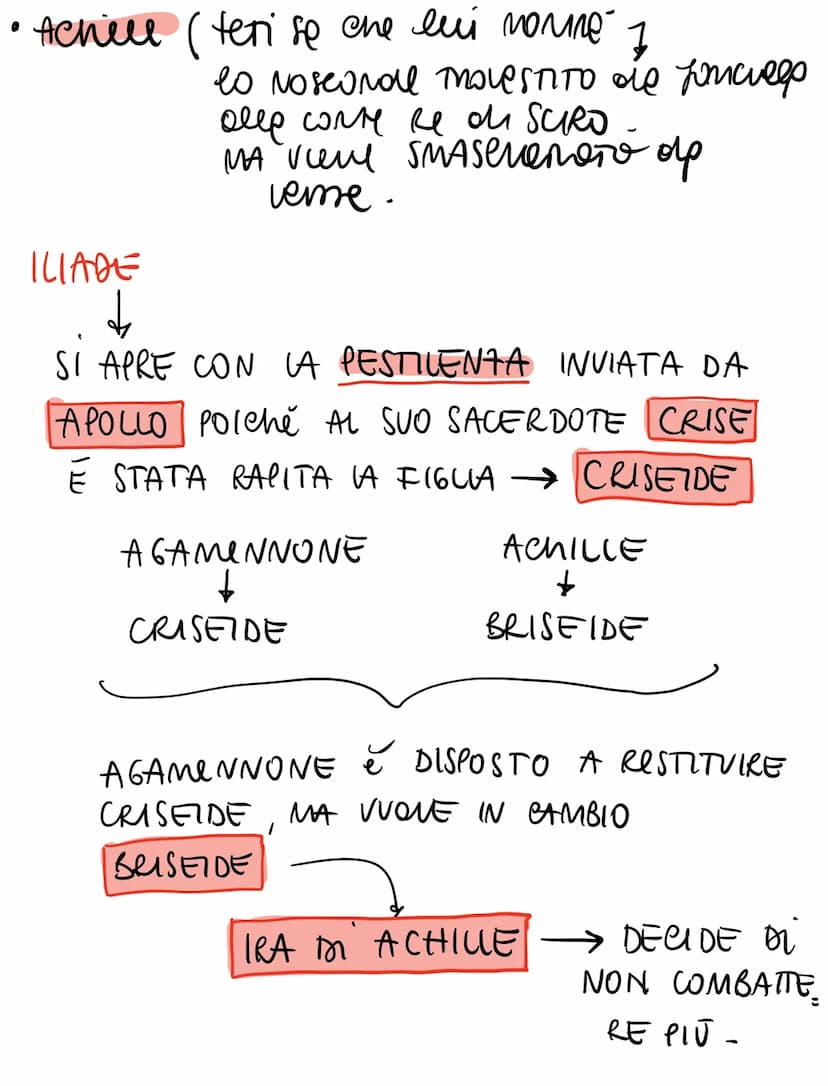 • Achille (teti sa che lui morirà
lo nasconde travestito da fanciulla
alla corte Re di SCIRO.
MA viene SMASCHERATO da
.
ILIADE
↓
SI APRE CON LA PESTILENZA INVIATA DA
APOLLO POIché AL SUO SACERDOTE CRISE
È STATA RAPITA LA FIGLIA → CRISEIDE
AGAMENNONE ACHILLE
↓ ↓
CRISEIDE BRISEIDE
AGAMENNONE è DISPOSTO A RESTITUIRE
CRISEIDE, MA VUOLE IN CAMBIO
BRISEIDE
IRA DI ACHILLE → DECIDE DI
NON COMBATTE=
RE PIÙ -